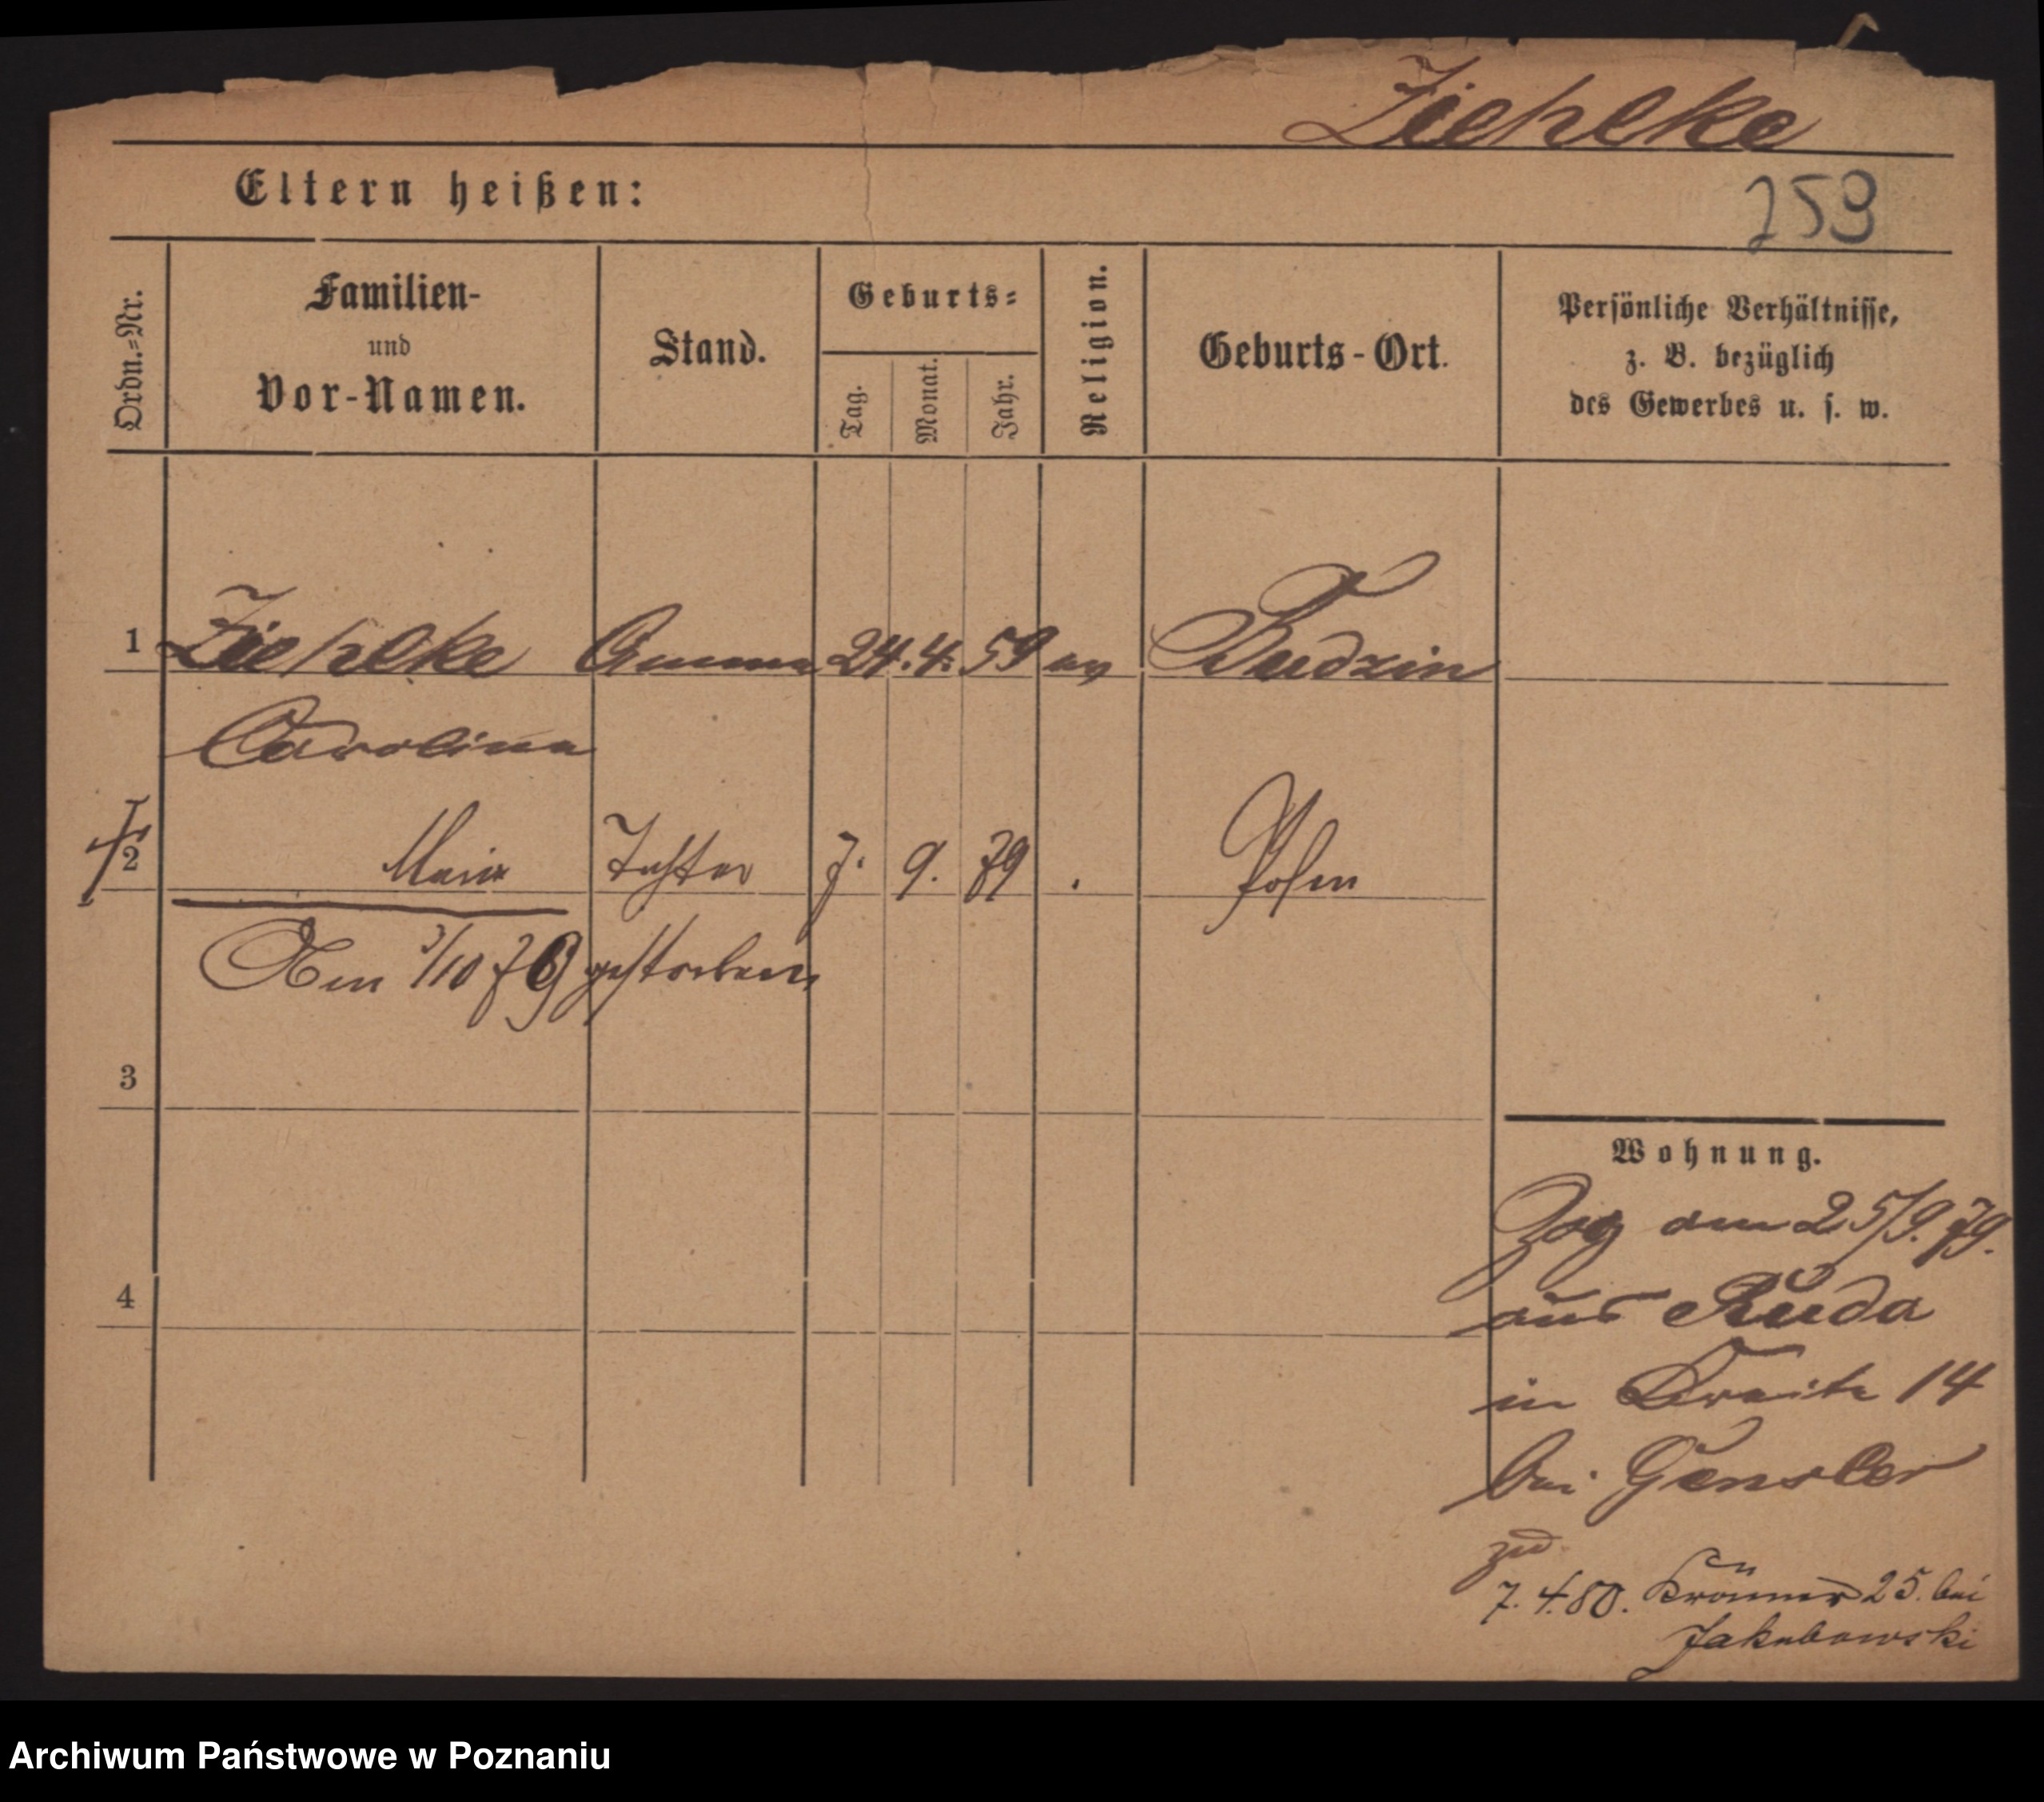 Ziehlke
Eltern heißen:
253
Ordn.=Nr.
Familien-
und
Vor-Namen.
Stand.
Geburts=
Tag.
Monat.
Jahr.
Religion.
Geburts-Ort.
Persönliche Verhältnisse,
z. B. bezüglich
des Gewerbes u. s. w.
1 Ziehlke Amme 24. 4. 59 ev Budzin
Carolina
2 Maria Tochter 7. 9. 79 Posen
Am 3/10 79 gestorben
3
Wohnung.
Zog am 25/9. 79.
4
aus Ruda
in Breite 14
bei Gensler
7. 4. 80. Krämer 25. bei
Jakubowski
Archiwum Państwowe w Poznaniu